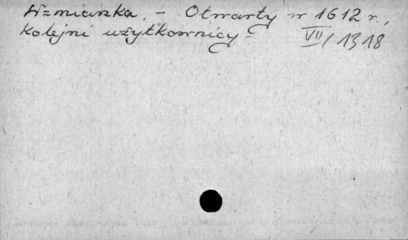 Wzmianka, - Otwarty w 1612 r.,
kolejni użytkownicy - VII/1318